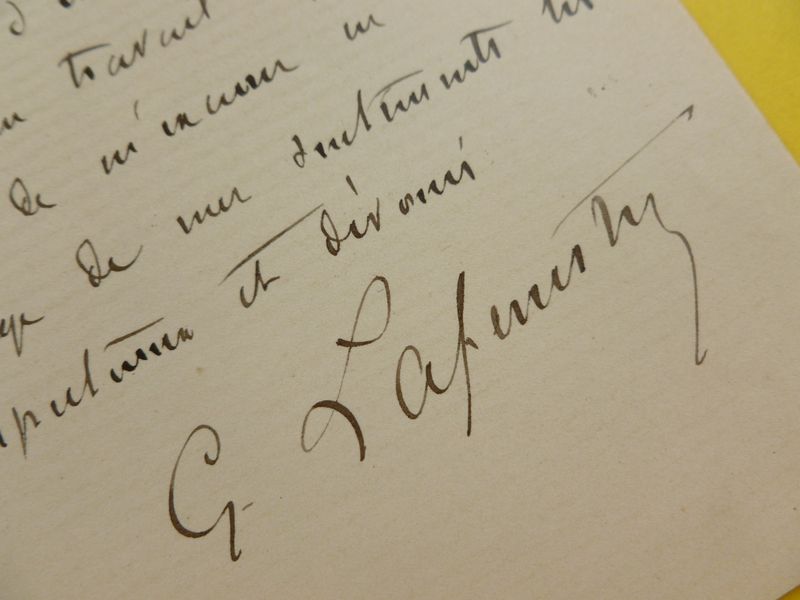 travail
de m'excuser
de mes sentiments
respectueux et dévoués
G. Lafenestre